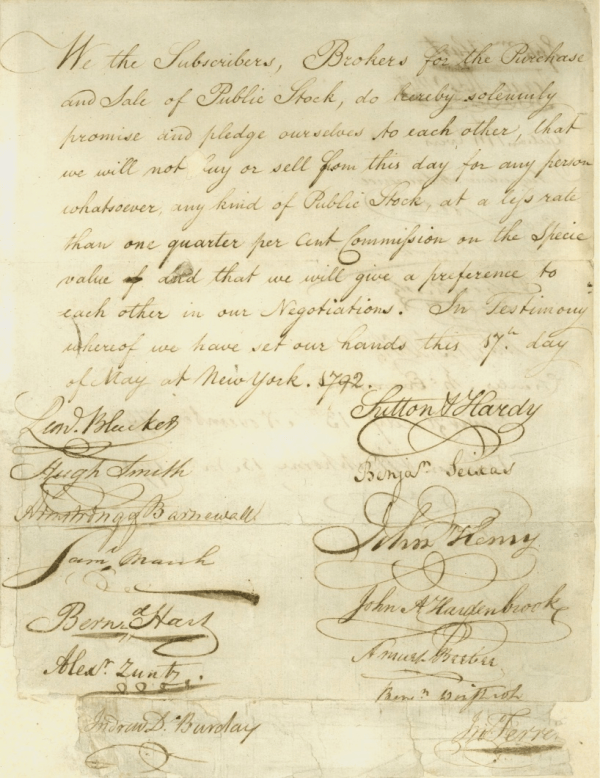 We the Subscribers, Brokers for the Purchase
and Sale of Public Stock, do hereby solemnly
promise and pledge ourselves to each other, that
we will not buy or sell from this day for any person
whatsoever, any kind of Public Stock, at a less rate
than one quarter per Cent Commission on the Specie
value of and that we will give a preference to
each other in our Negotiations. In Testimony
whereof we have set our hands this 17th. day
of May at New York. 1792.
Leod. Bleecker
Hugh Smith
Armstrong & Barnewall
Saml. March
Bernd. Hart
Alexr. Zuntz.
Andrew D. Barclay
Sutton & Hardy
Benjan. Seixas
John Henry
John A Hardenbrook
Amurt Beebee
Benjn.